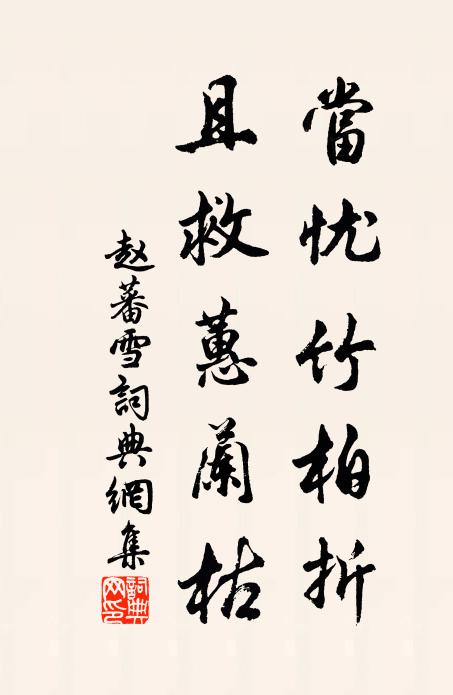 當忧竹柏折
且救蕙蘭枯
赵蕃雪詞典網集
詞典网印